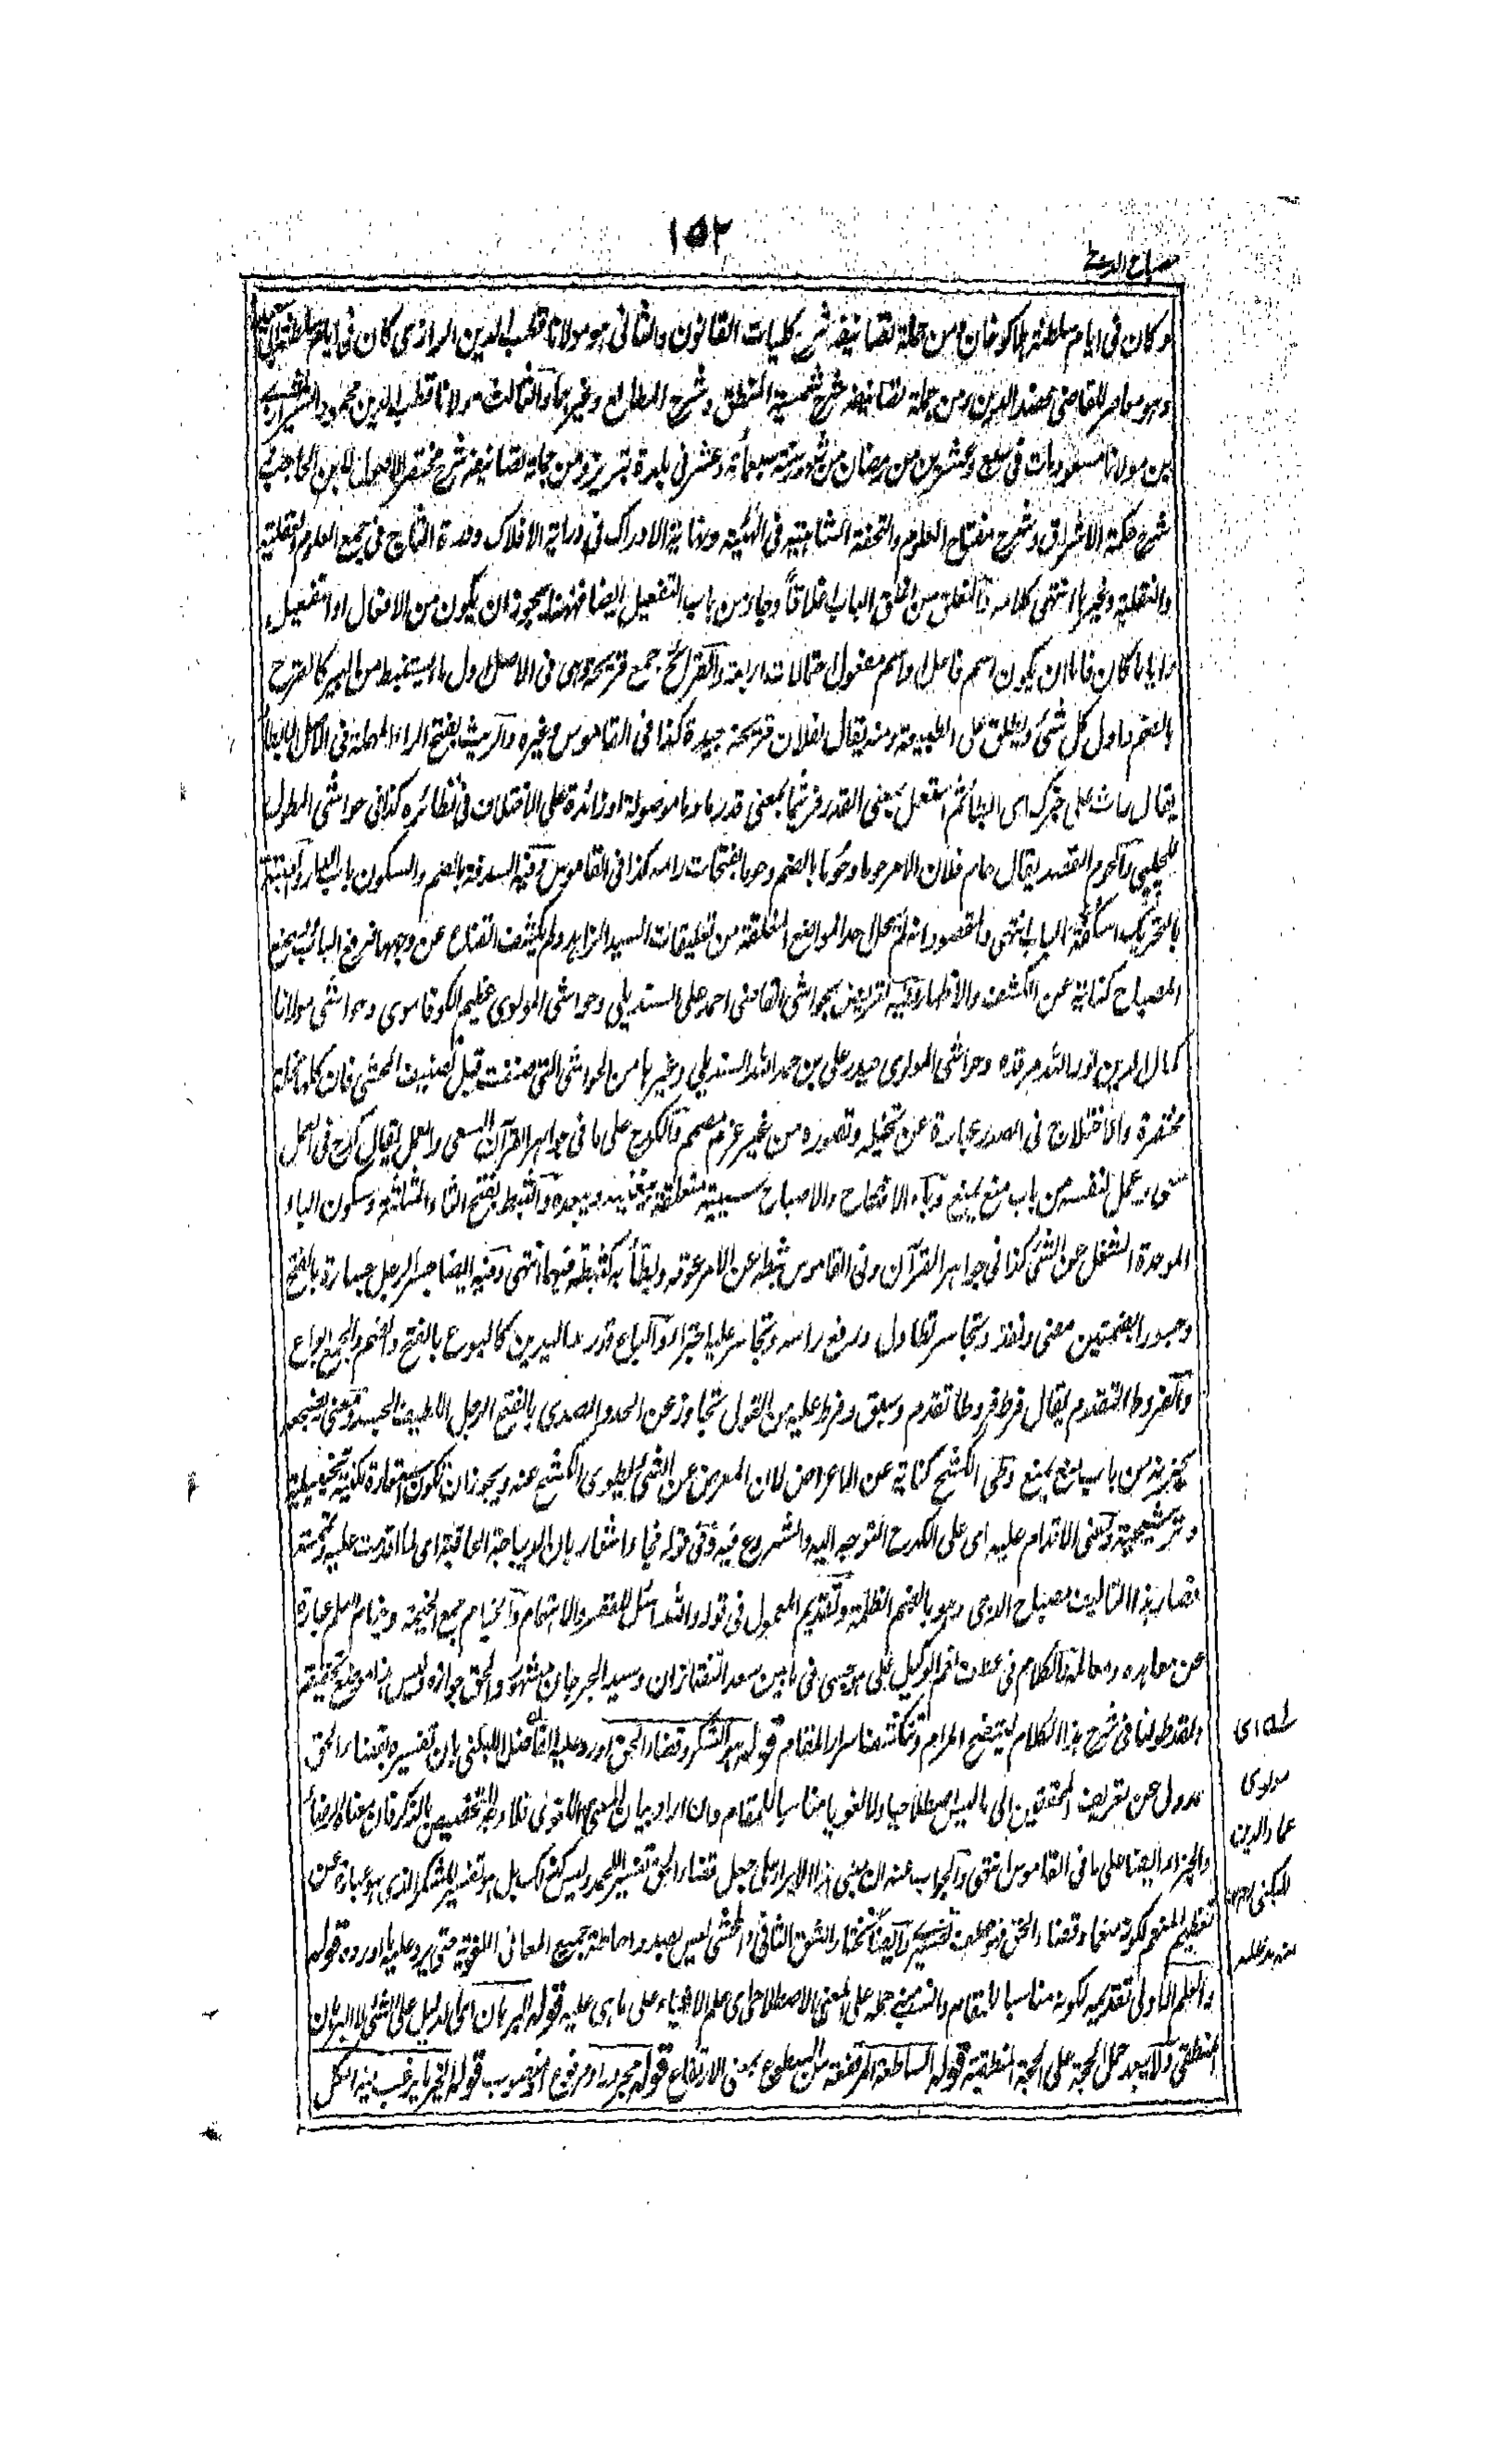 ١٥٢
مصباح الدجى
وكان فى ايام سلطنة هلاكو خان ومن جملة تصانيفه شرح كليات القانون والثانى هو مولانا قطب الدين الرازى كان فى ايام سلطنة
وهو معاصر للقاضى عضد الدين ومن جملة تصانيفه شرح شمسية المنطق وشرح المطالع وغيرهما والثالث مولانا قطب الدين محمود الشيرازى
بن مولانا مسعود مات فى سبع وعشرين من رمضان من شهور سنة سبعمائة وعشر فى بلدة تبريز ومن جملة تصانيفه شرح مختصر الاصول لابن الحاجب
شرح حكمة الاشراق وشرح مفتاح العلوم والتحفة الشاهية فى الهيئة ونهاية الادراك فى دراية الافلاك ودرة التاج فى جميع العلوم العقلية
والنقلية وغيرها انتهى كلامه والمغلق من اغلق الباب اغلاقاً وجاء من باب التفعيل ايضا فههنا يجوز ان يكون من الافعال او التفعيل
وايا ما كان فاما ان يكون اسم فاعل او اسم مفعول احتمالات اربعة والقرائح جمع قريحة وهى فى الاصل اول ما يستنبط من البير كالقرح
بالضم واول كل شئ ويطلق على الطبيعة ومنه يقال لفلان قريحة جيدة كذا فى القاموس وغيره والريث بفتح الراء المهملة فى الاصل الابطاء
يقال راث على خبرك اى ابطأ ثم استعمل بمعنى القدر فريثما بمعنى قدر ما وما موصولة او زائدة على الاختلاف فى نظائره كذا فى حواشى المطول
للچلپى والحوم القصد يقال حام فلان الامر حوما وحُوما بالضم وحوما بفتحات رامه كذا فى القاموس وفيه السدفة بالضم والسكون باب الدار والعتبة
بالتحريك اسكفة الباب انتهى والمقصود انه لم يحلل احد المواضع المغلقة من تعليقات السيد الزاهد ولم يكشف القناع عن وجهها فرفع البائس يضع
المصباح كناية عن الكشف والاظهار وفيه تعريض بحواشى القاضى احمد على السنديلى وحواشى المولوى عظيم الكوفاموى وحواشى مولانا
كمال الدين نور الله مرقده وحواشى المولوى حيدر على بن حمد الله السنديلى وغيرها من الحواشى التى صنفت قبل تصنيف المحشى فان كلها مخلة
مختصرة والاختلاج فى الصدر عبارة عن تخيله وتصوره من غير عزم مصمم والكدح على ما فى جواهر القرآن السعى والعمل يقال كدح فى العمل
سعى وعمل لنفسه من باب منع يمنع وباء الافتتاح والاصباح سببية متعلقة بيغنيه ويبعده والثبط بفتح الثاء المثلثة وسكون الباء
الموحدة الشغل عن الشئ كذا فى جواهر القرآن وفى القاموس ثبطه عن الامر عوقه وبطأ به كثبطه فيهما انتهى وفيه ايضا جسر الرجل جسارة بالفتح
وجسورا بضمتين مضى ونفذ وتجاسر تطاول ورفع راسه وتجاسر عليه اجترأ والباع قدر مد اليدين كالبوع بالفتح والضم والجمع ابواع
والفروط التقدم يقال فرط فروطا تقدم وسبق وفرط عليه من القول تجاوز عن الحد والصدى بالفتح الرجل اللطيف الجسد
من باب منع يمنع وطى الكشح كناية عن الاعراض لان المعرض عن الشئ يطوى الكشح عنه ويجوز ان تكون استعارة مكنية تخييلية
وترشيحية ومعنى الاقدام عليه اى على الكدح التوجه اليه والشروع فيه وفى قوله فجاء اشعار بان الديباجة الحاقية اى لما اقدمت عليه
فصار هذا التاليف مصباح الدجى وهو بالضم الظلمة وتقديم المعمول فى قوله والله اسئل للقصر والاهتمام والخيام جمع الخيمة
عن معاهده ومعالمه والكلام فى عطف نعم الوكيل على هو حسبى فى ما بين سعد التفتازان وسيد الجرجان مشهور والحق جوازه وليس هذا موضع تحقيقه
ولقد طولنا فى شرح هذا الكلام ليتضح المرام وتنكشف اسرار المقام قوله هو الشكر وقضاء الحق اورد عليه الفاضل اللبكنى بان تفسيره بقضاء الحق
عدول عن تعريف المحققين الى ما ليس اصطلاحيا ولا لغويا مناسبا للمقام وان اراد بيان المعنى اللغوى فلا وجه لتخصيص بالذكر فان معناه الرضا
والجزاء ايضا على ما فى القاموس انتهى والجواب عنه ان مبنى هذا الايراد على جعل قضاء الحق تفسيرا للحمد وليس كذلك بل هو تفسير للشكر الذى هو عبارة عن
تعظيم المنعم لكونه منعما وقضاء الحق وايضاً نختار الشق الثانى والمحشى ليس بصدد احاطة جميع المعانى اللغوية حتى يرد عليه ما اورده قوله
والعلم الاولى تقديمه لكونه مناسبا للمقام حمله على المعنى الاصطلاحى اى علم الاشياء على ما هى عليه قوله البرهان اى الدليل على الشئ لا البرهان
المنطقى ولا يبعد حمل الحجة على الحجة المنطقية قوله الساطعة المرتفعة من السطوع بمعنى الارتفاع قوله مجرور او مرفوع او منصوب قوله الخير ما يرغب فيه الكل
له اى
مولوى
عماد الدين
اللبكنى
منه مد ظله